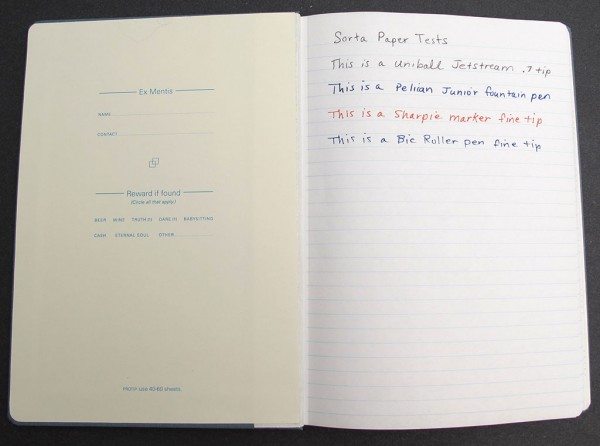 Ex Mentis
NAME
CONTACT
Reward if found
(Circle all that apply.)
BEER WINE TRUTH (1) DARE (1) BABYSITTING
CASH ETERNAL SOUL OTHER
PROTIP: use 40-60 sheets.
Sorta Paper Tests
This is a Uniball Jetstream .7 tip
This is a Pelican Junior fountain pen
This is a Sharpie marker fine tip
This is a Bic Roller pen fine tip